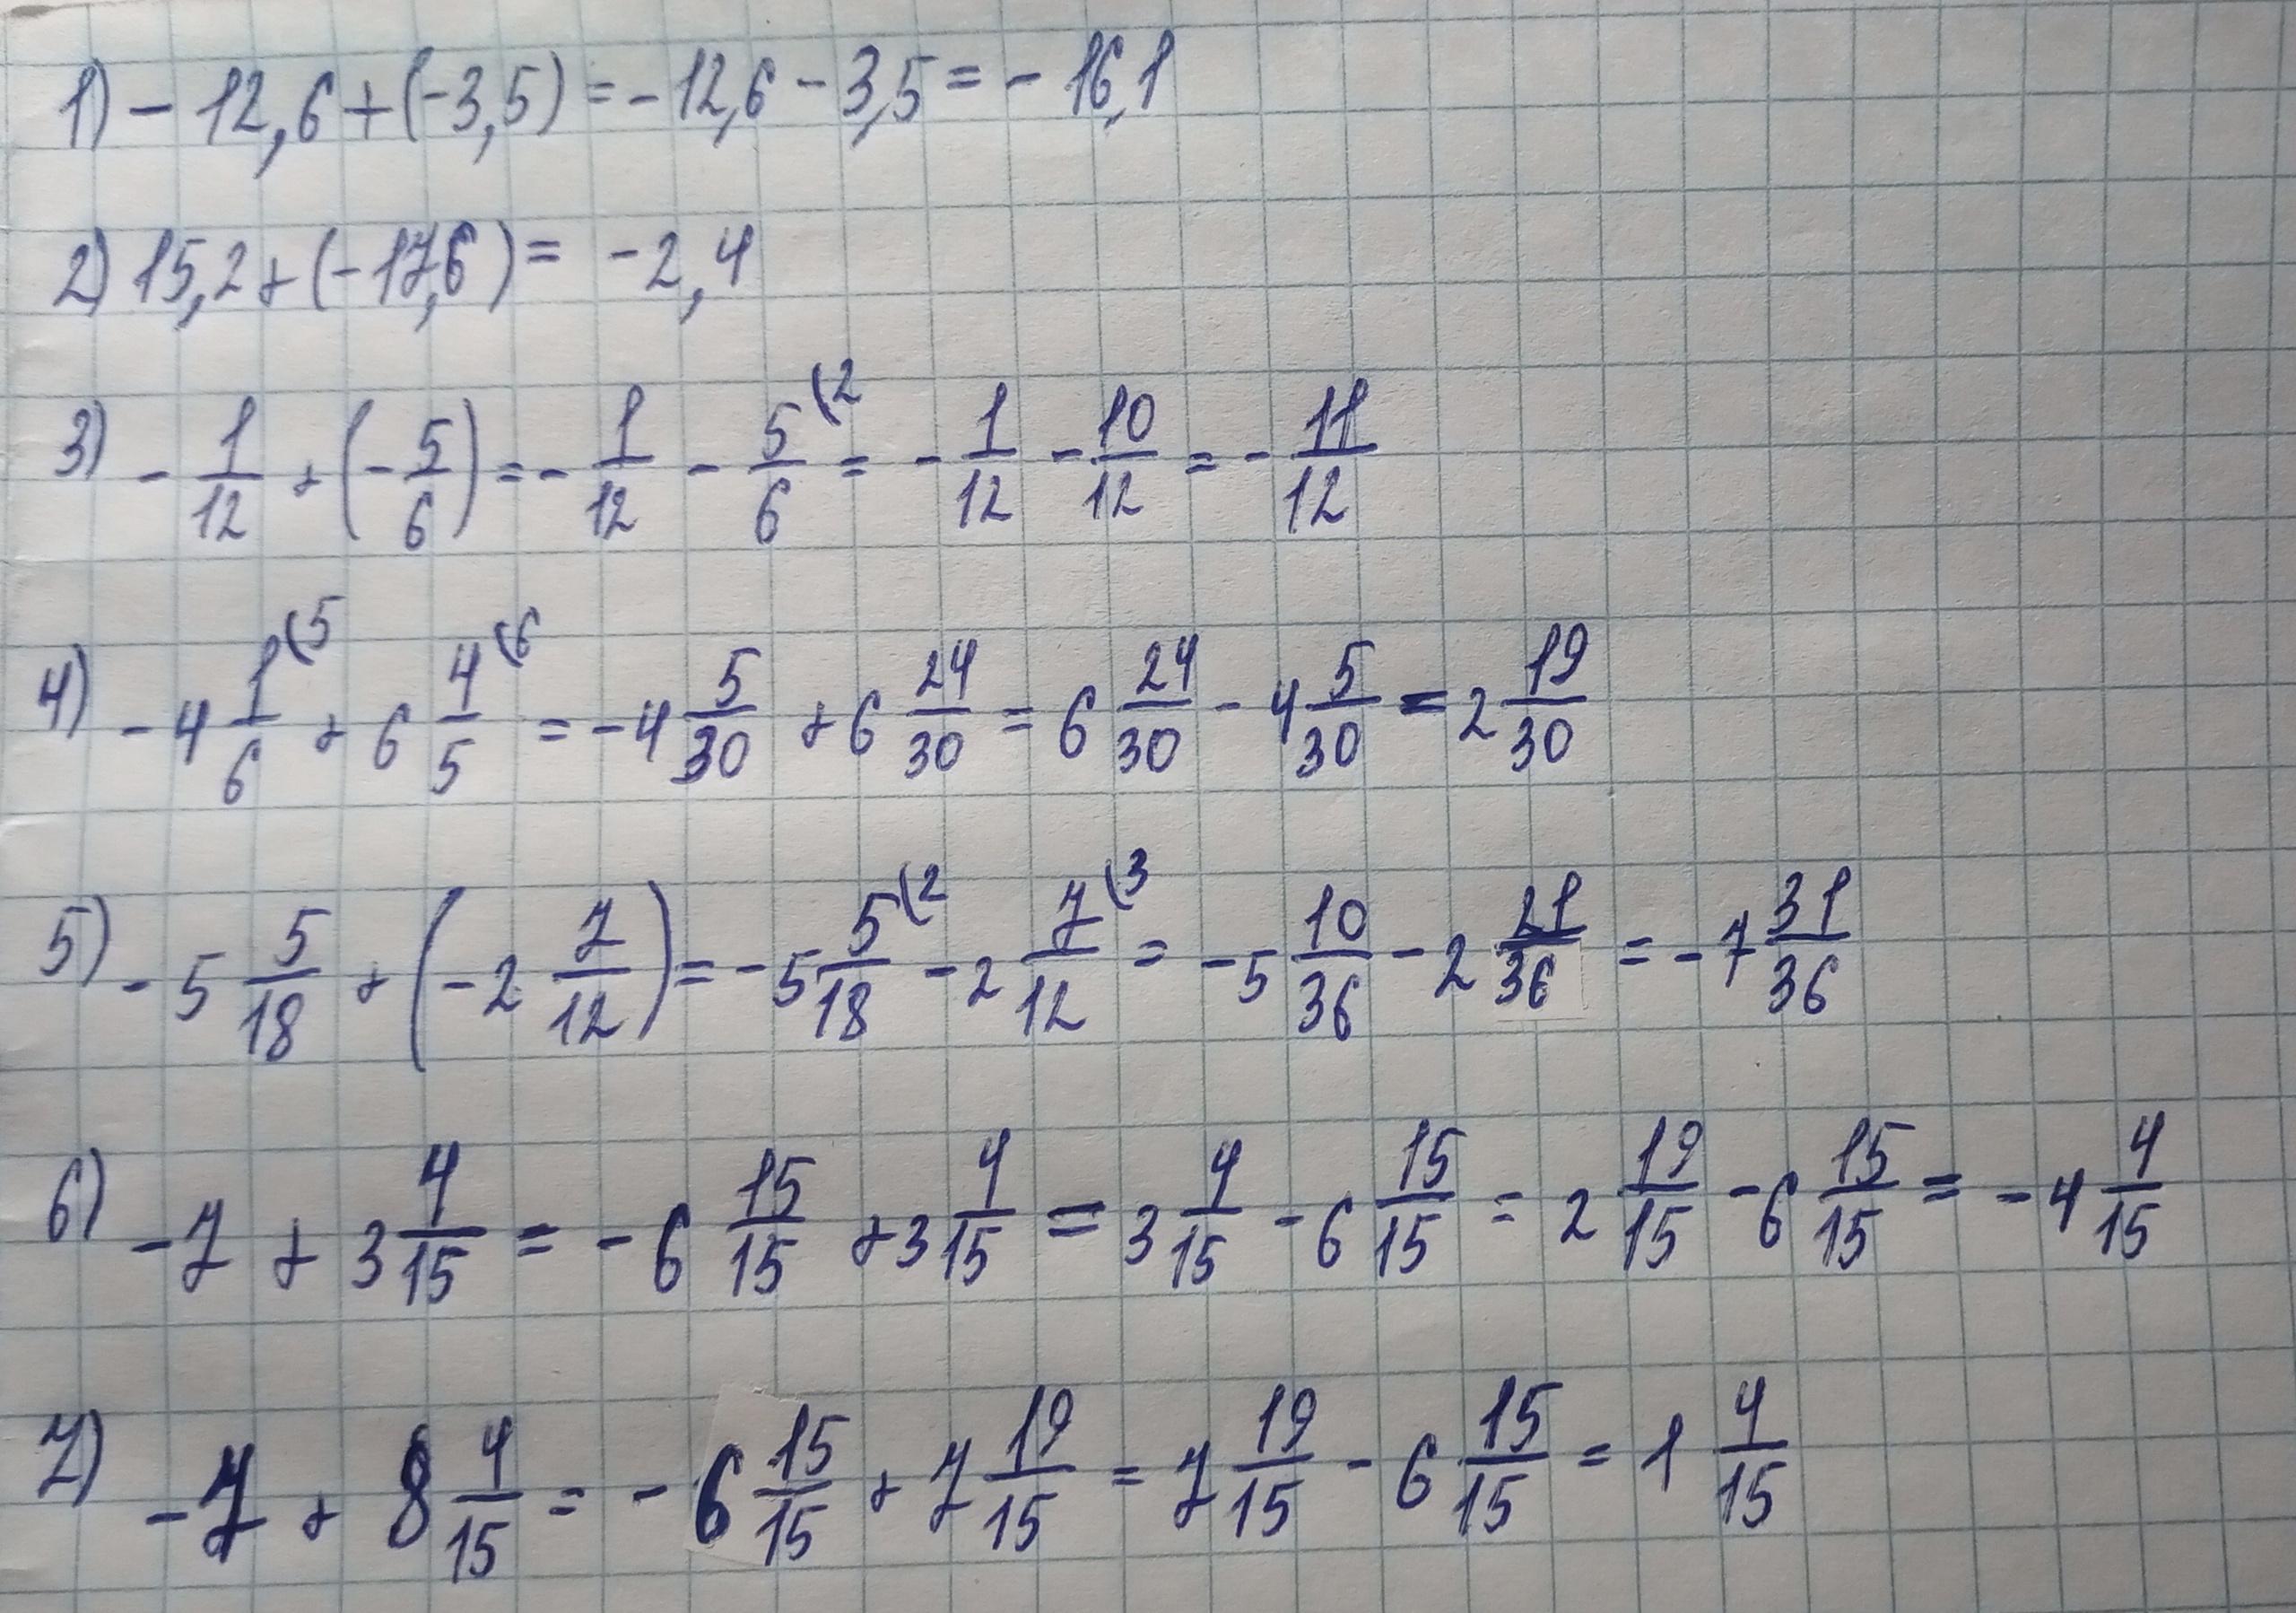 1) - 12,6 + (-3,5) = - 12,6 - 3,5 = - 16,1
2) 15,2 + (-17,6) = -2,4
3) - 1/12 + (- 5/6) = - 1/12 - 5/6 (2 = - 1/12 - 10/12 = - 11/12
4) - 4 1/6 (5 + 6 4/5 (6 = - 4 5/30 + 6 24/30 = 6 24/30 - 4 5/30 = 2 19/30
5) - 5 5/18 + (- 2 7/12) = - 5 5/18 (2 - 2 7/12 (3 = - 5 10/36 - 2 21/36 = - 7 31/36
6) - 7 + 3 4/15 = - 6 15/15 + 3 4/15 = 3 4/15 - 6 15/15 = 2 19/15 - 6 15/15 = - 4 4/15
7) - 7 + 8 4/15 = - 6 15/15 + 7 19/15 = 7 19/15 - 6 15/15 = 1 4/15